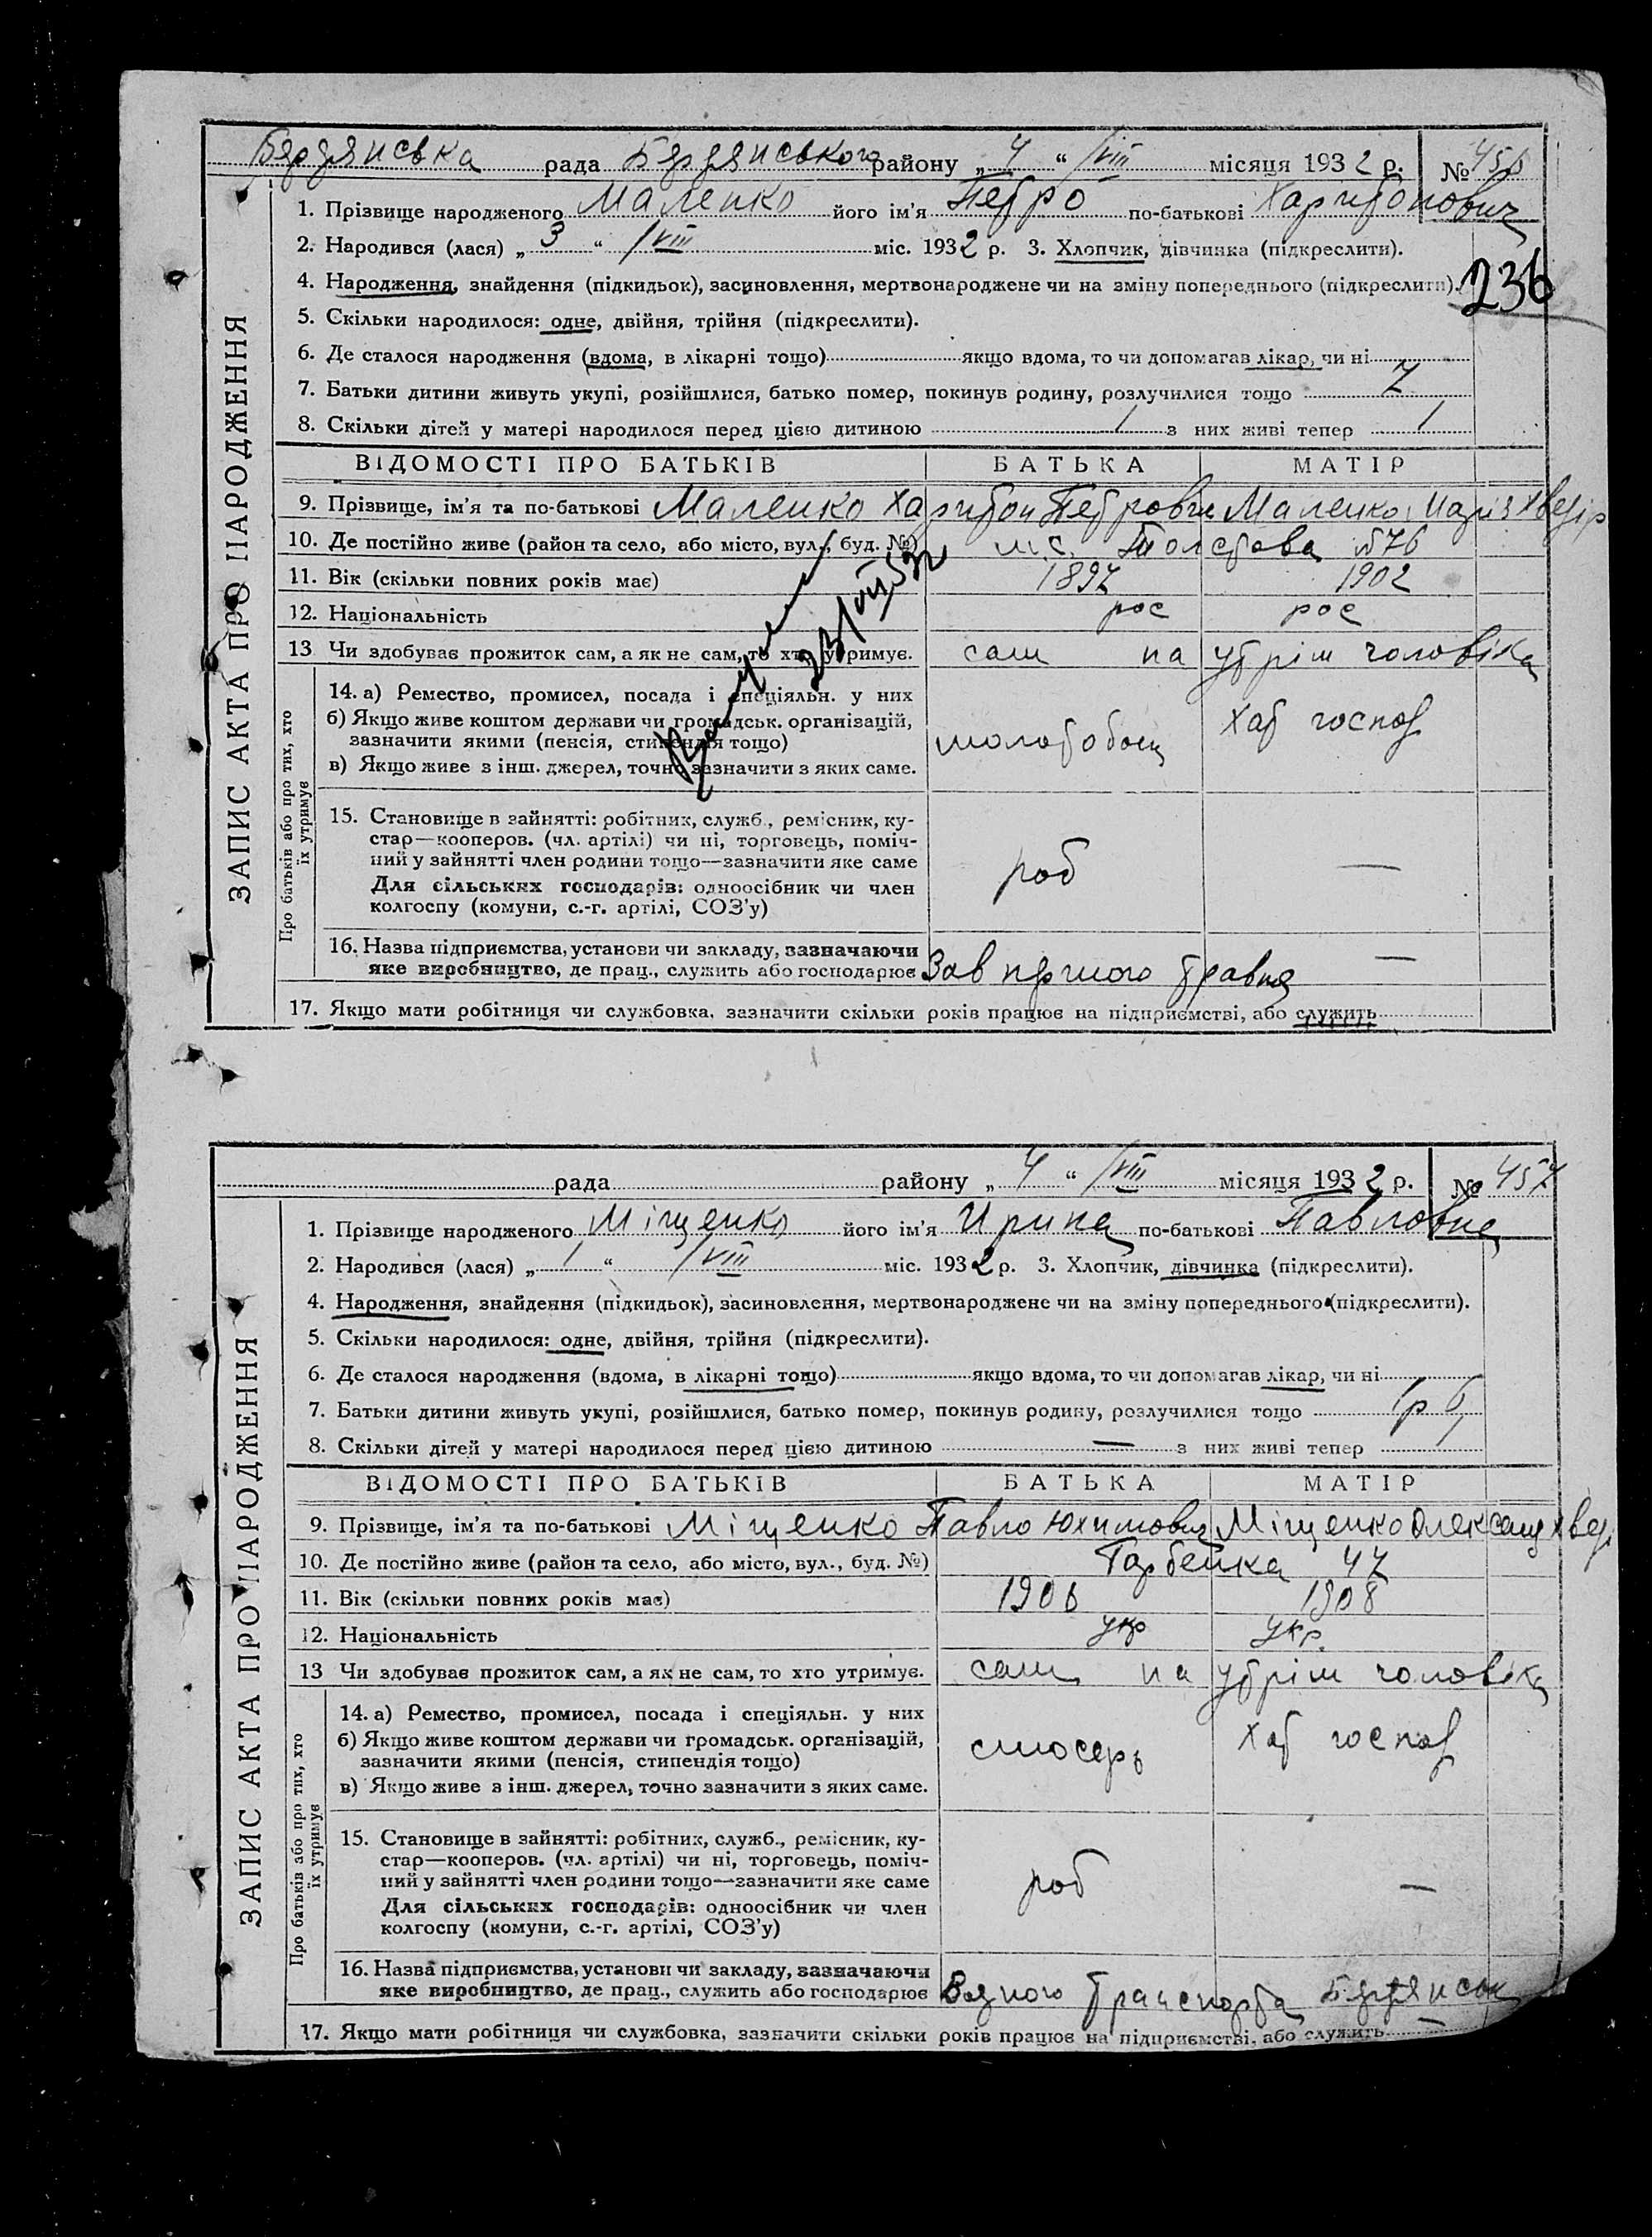 Бердянська рада Бердянського району „ 4 “ /VIII місяця 1932 р. № 456
1. Прізвище народженого Маленко його ім'я Петро по-батькові Харитонович
2. Народився (лася) „ 3 “ /VIII міс. 1932 р. 3. Хлопчик, дівчинка (підкреслити).
236
4. Народження, знайдення (підкидьок), засиновлення, мертвонароджене чи на зміну попереднього (підкреслити).
5. Скільки народилося: одне, двійня, трійня (підкреслити).
6. Де сталося народження (вдома, в лікарні тощо) якщо вдома, то чи допомагав лікар, чи ні
7. Батьки дитини живуть укупі, розійшлися, батько помер, покинув родину, розлучилися тощо 7
8. Скільки дітей у матері народилося перед цією дитиною 1 з них живі тепер 1
ВІДОМОСТІ ПРО БАТЬКІВ БАТЬКА МАТІР
9. Прізвище, ім'я та по-батькові Маленко Харитон Петрович Маленко Марія Хведір
10. Де постійно живе (район та село, або місто, вул., буд. №) м.с. Толстова №76
11. Вік (скільки повних років має) 1897 1902
12. Національність рос рос
13 Чи здобуває прожиток сам, а як не сам, то хто утримує. сам на утрім чоловіка
23/VIII 32
14. а) Ремество, промисел, посада і спеціяльн. у них
б) Якщо живе коштом держави чи громадськ. організацій,
зазначити якими (пенсія, стипендія тощо)
в) Якщо живе з інш. джерел, точно зазначити з яких саме.
молотобоец Хат господ
15. Становище в зайнятті: робітник, служб., ремісник, ку-
стар—кооперов. (чл. артілі) чи ні, торговець, поміч-
ний у зайнятті член родини тощо—зазначити яке саме
Для сільських господарів: одноосібник чи член
колгоспу (комуни, с.-г. артілі, СОЗ'у)
роб —
16. Назва підприємства, установи чи закладу, зазначаючи
яке виробництво, де прац., служить або господарює Зав першого травня —
17. Якщо мати робітниця чи службовка, зазначити скільки років працює на підприємстві, або служить
ЗАПИС АКТА ПРО НАРОДЖЕННЯ
Про батьків або про тих, хто
їх утримує
рада району „ 4 “ /VIII місяця 1932 р. № 457
1. Прізвище народженого Міщенко його ім'я Ирина по-батькові Павловна
2. Народився (лася) „ 1 “ /VIII міс. 1932 р. 3. Хлопчик, дівчинка (підкреслити).
4. Народження, знайдення (підкидьок), засиновлення, мертвонароджене чи на зміну попереднього (підкреслити).
5. Скільки народилося: одне, двійня, трійня (підкреслити).
6. Де сталося народження (вдома, в лікарні тощо) якщо вдома, то чи допомагав лікар, чи ні
7. Батьки дитини живуть укупі, розійшлися, батько помер, покинув родину, розлучилися тощо
8. Скільки дітей у матері народилося перед цією дитиною — з них живі тепер
ВІДОМОСТІ ПРО БАТЬКІВ БАТЬКА МАТІР
9. Прізвище, ім'я та по-батькові Міщенко Павло Юхимович Міщенко Олександ Хвед
10. Де постійно живе (район та село, або місто, вул., буд. №) 47
11. Вік (скільки повних років має) 1906 1908
12. Національність укр укр.
13 Чи здобуває прожиток сам, а як не сам, то хто утримує. сам на утрім чоловіка
14. а) Ремество, промисел, посада і спеціяльн. у них
б) Якщо живе коштом держави чи громадськ. організацій,
зазначити якими (пенсія, стипендія тощо)
в) Якщо живе з інш. джерел, точно зазначити з яких саме.
слюсерь Хат господ
15. Становище в зайнятті: робітник, служб., ремісник, ку-
стар—кооперов. (чл. артілі) чи ні, торговець, поміч-
ний у зайнятті член родини тощо—зазначити яке саме
Для сільських господарів: одноосібник чи член
колгоспу (комуни, с.-г. артілі, СОЗ'у)
роб —
16. Назва підприємства, установи чи закладу, зазначаючи
яке виробництво, де прац., служить або господарює Водного транспорта Бердянськ
17. Якщо мати робітниця чи службовка, зазначити скільки років працює на підприємстві, або служить —
ЗАПИС АКТА ПРО НАРОДЖЕННЯ
Про батьків або про тих, хто
їх утримує